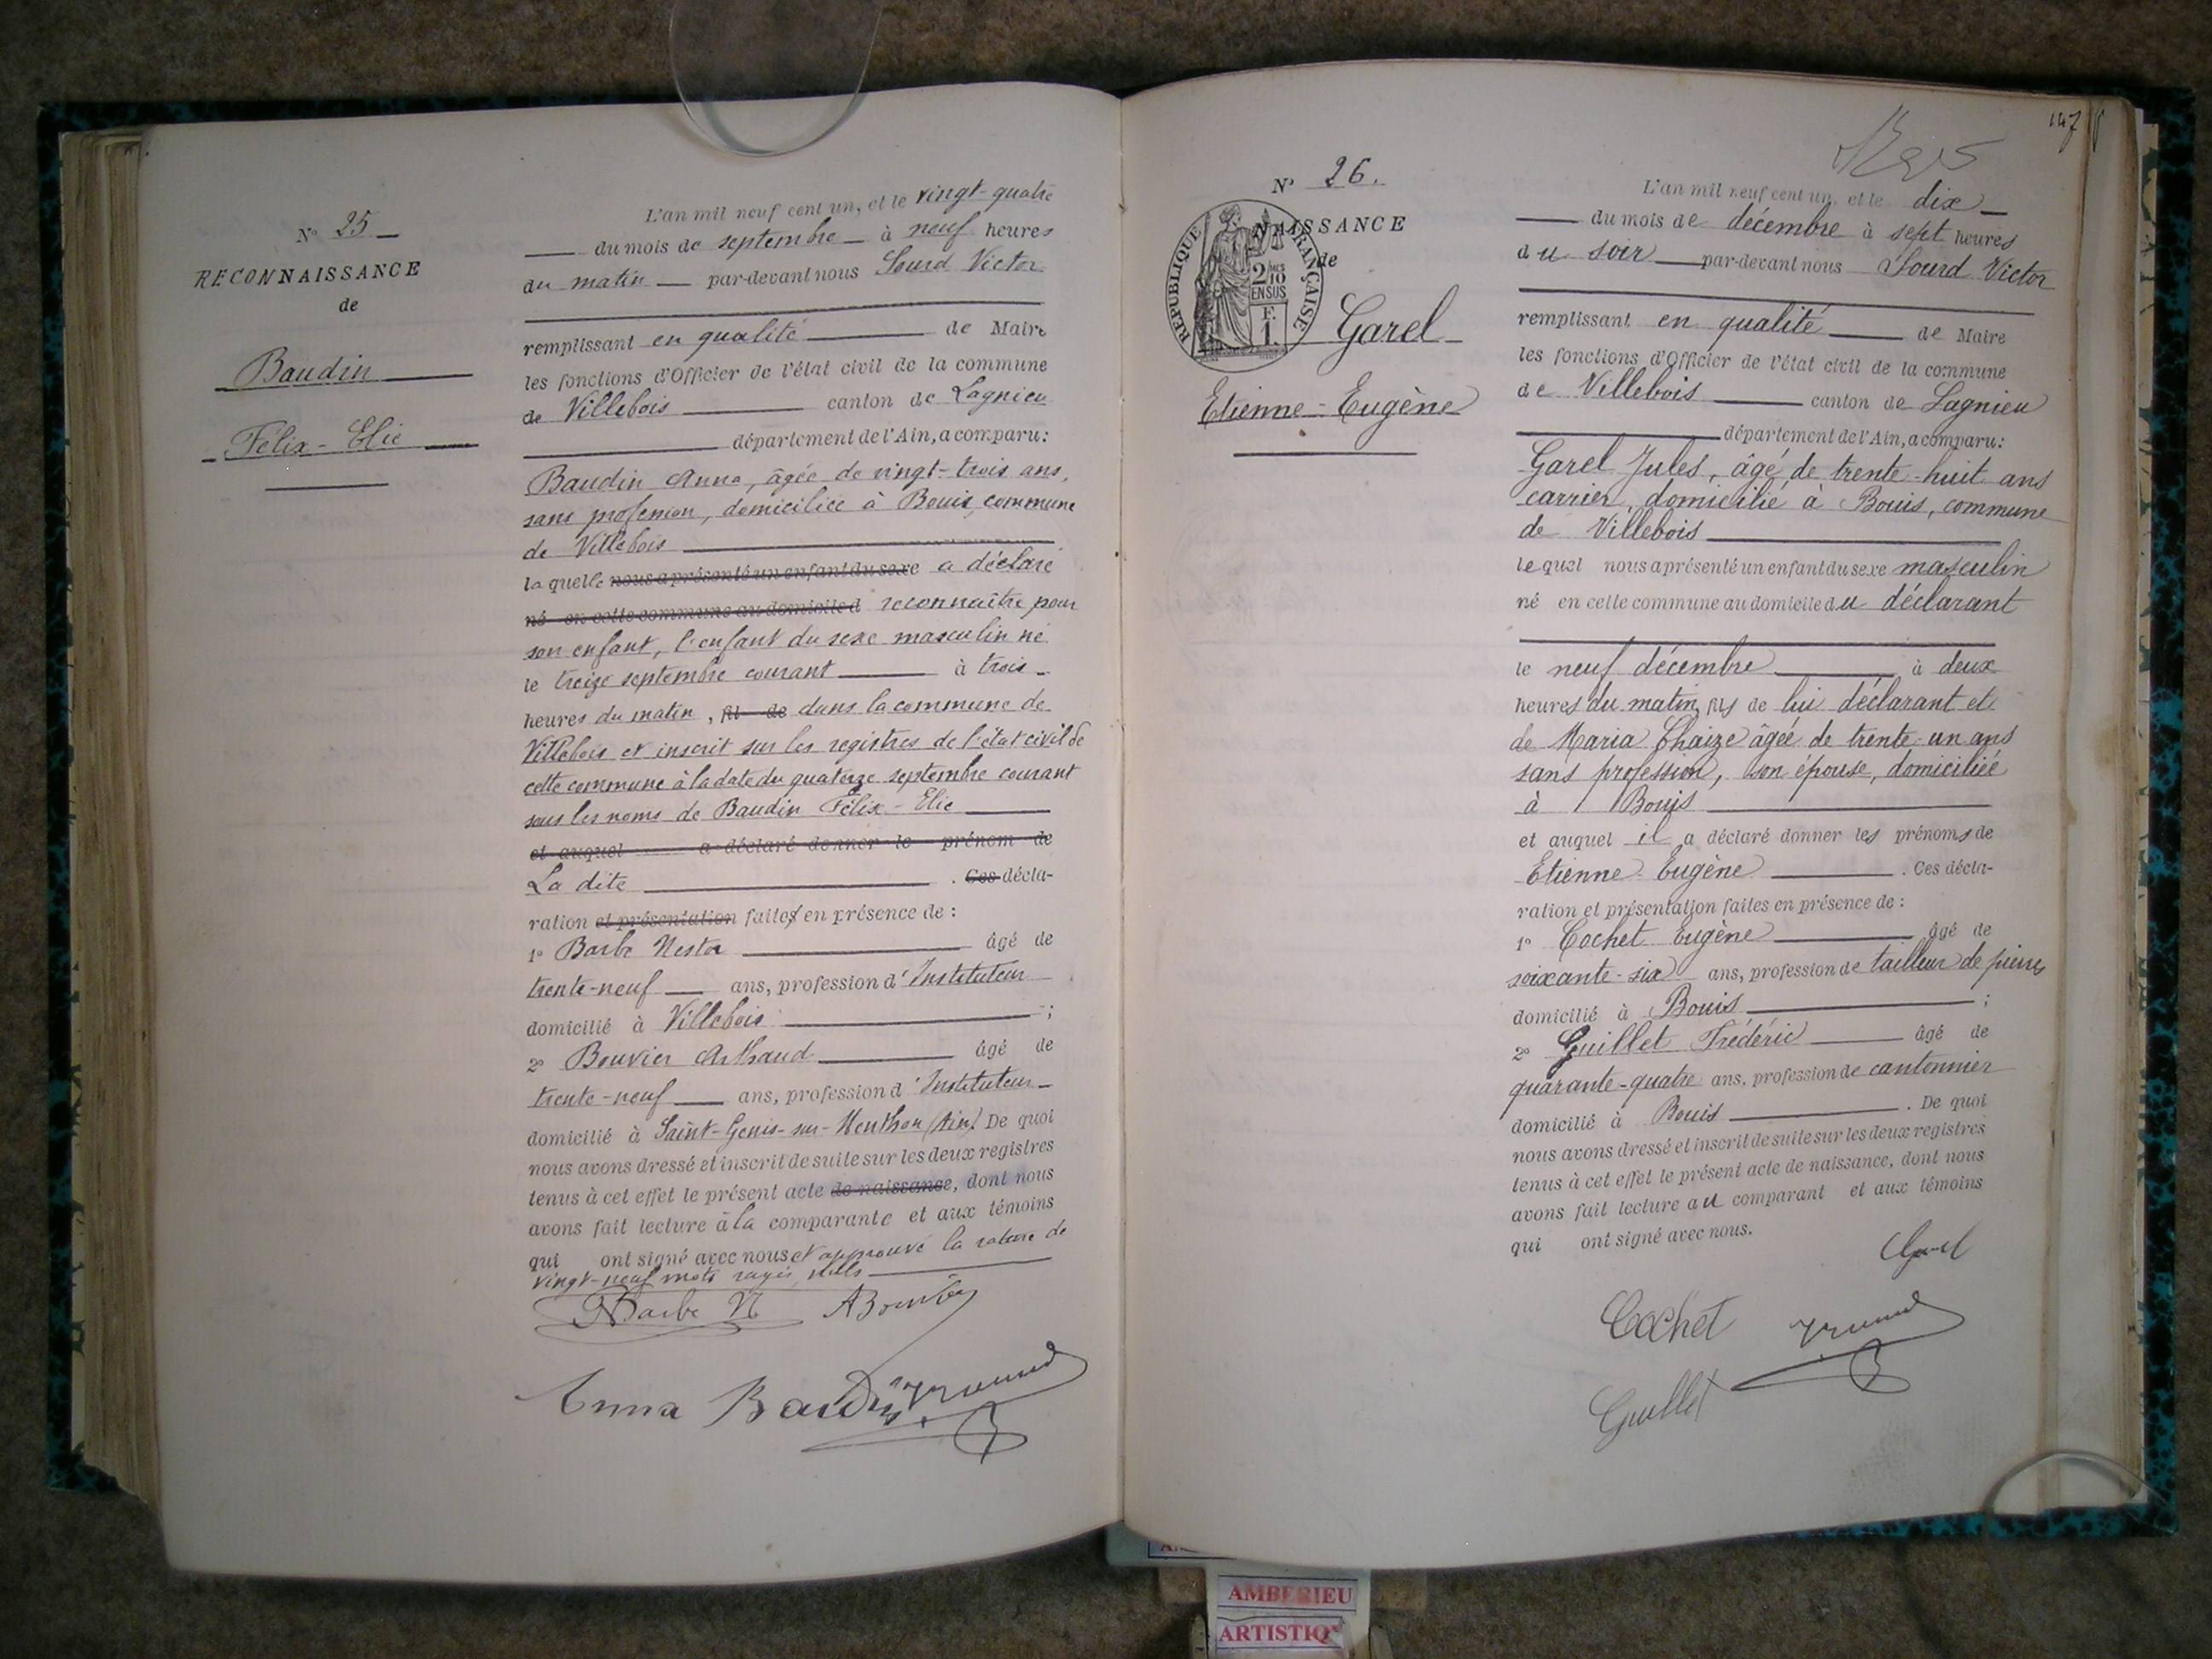 N° 25
RECONNAISSANCE
de
Baudin
Félix-Elie
L'an mil neuf cent un, et le vingt-quatre
du mois de septembre à neuf heures
du matin par-devant nous Sourd Victor
remplissant en qualité de Maire
les fonctions d'Officier de l'état civil de la commune
de Villebois canton de Lagnieu
département de l'Ain, a comparu:
Baudin Anna, âgée de vingt-trois ans,
sans profession, domiciliée à Bouis, commune
de Villebois
laquelle nous a présenté un enfant du sexe a déclaré
né en cette commune au domicile d reconnaître pour
son enfant, l'enfant du sexe masculin né
le treize septembre courant à trois
heures du matin, fil de dans la commune de
Villebois et inscrit sur les registres de l'état civil de
cette commune à la date du quatorze septembre courant
sous les noms de Baudin Félix-Elie
et auquel a déclaré donner le prénom de
La dite . Ces décla-
ration et présentation faites en présence de :
1° Barbe Nestor âgé de
trente-neuf ans, profession d'Instituteur
domicilié à Villebois ;
2° Bouvier Arthaud âgé de
trente-neuf ans, profession d'Instituteur
domicilié à Saint-Genis-sur-Menthon (Ain). De quoi
nous avons dressé et inscrit de suite sur les deux registres
tenus à cet effet le présent acte de naissance, dont nous
avons fait lecture à la comparante et aux témoins
qui ont signé avec nous et approuvé la rature de
vingt-neuf mots rayés nuls
Barbe N ABouvier
Anna Baudin
147
N° 26.
NAISSANCE
de
REPUBLIQUE FRANÇAISE
2/10 EN SUS
F. 1
Garel
Etienne-Eugène
L'an mil neuf cent un, et le dix
du mois de décembre à sept heures
du soir par-devant nous Sourd Victor
remplissant en qualité de Maire
les fonctions d'Officier de l'état civil de la commune
de Villebois canton de Lagnieu
département de l'Ain, a comparu:
Garel Jules, âgé de trente-huit ans
carrier, domicilié à Bouis, commune
de Villebois
lequel nous a présenté un enfant du sexe masculin
né en cette commune au domicile du déclarant
le neuf décembre à deux
heures du matin, fils de lui déclarant et
de Maria Chaize âgée de trente-un ans
sans profession, son épouse, domiciliée
à Bouis
et auquel il a déclaré donner les prénoms de
Etienne Eugène . Ces décla-
ration et présentation faites en présence de :
1° Cochet Eugène âgé de
soixante-six ans, profession de tailleur de pierres
domicilié à Bouis ;
2° Guillet Frédéric âgé de
quarante-quatre ans, profession de cantonnier
domicilié à Bouis . De quoi
nous avons dressé et inscrit de suite sur les deux registres
tenus à cet effet le présent acte de naissance, dont nous
avons fait lecture au comparant et aux témoins
qui ont signé avec nous.
Garel
Cochet
Guillet
AMBERIEU
ARTISTIQ